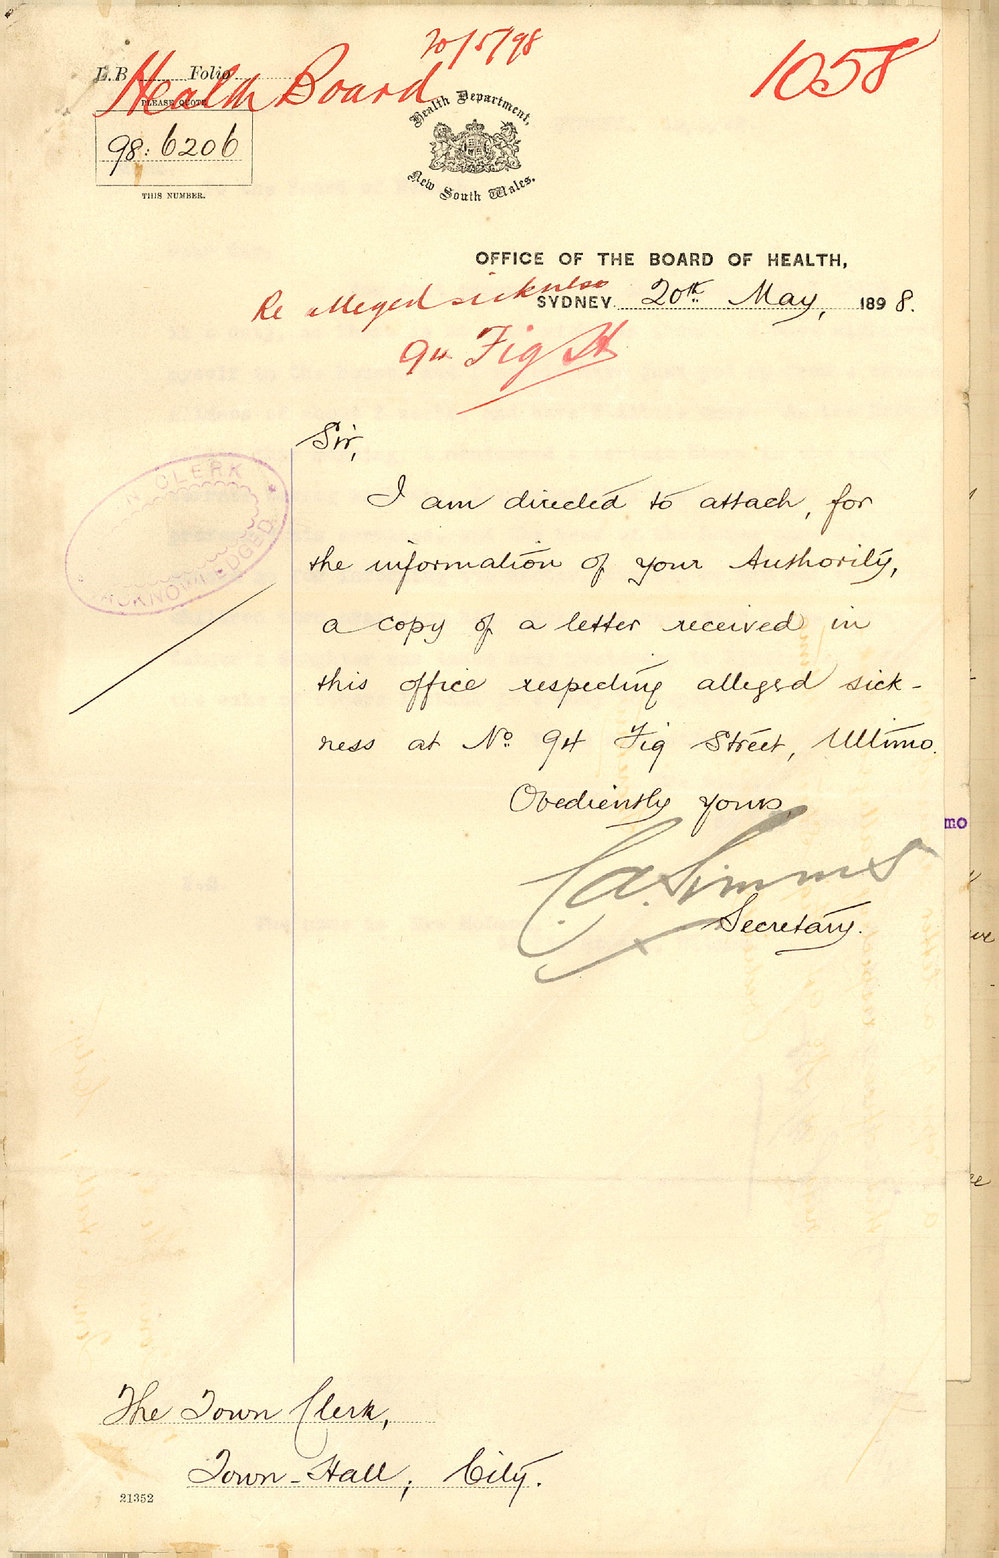 20/5/98
1058
L.B. Folio
Health Board
PLEASE QUOTE
98:6206
THIS NUMBER.
Health Department,
New South Wales.
OFFICE OF THE BOARD OF HEALTH,
SYDNEY 20th May, 1898.
Re alleged sickness
94 Fig St
Sir,
I am directed to attach, for
the information of your Authority,
a copy of a letter received in
this office respecting alleged sick-
ness at No. 94 Fig Street, Ultimo.
Obediently yours,
C.A. Simms
Secretary.
N CLERK
ACKNOWLEDGED
mo
The Town Clerk,
Town-Hall, City.
21352